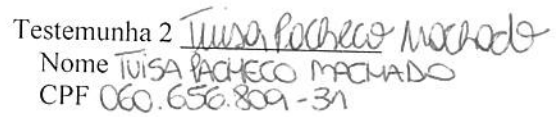 Testemunha 2 Tuisa Pacheco Machado
Nome TUISA PACHECO MACHADO
CPF 060.656.809-31